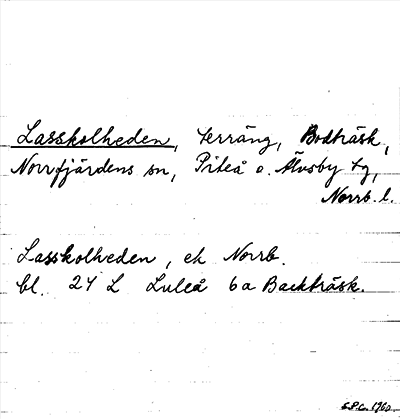 Lasskolheden, terräng, Bodträsk,
Norrfjärdens sn, Piteå o. Älvsby tg,
Norrb. l.
Lasskolheden, ek Norrb.
bl. 24 L Luleå 6a Backträsk.
S.P.C. 1960